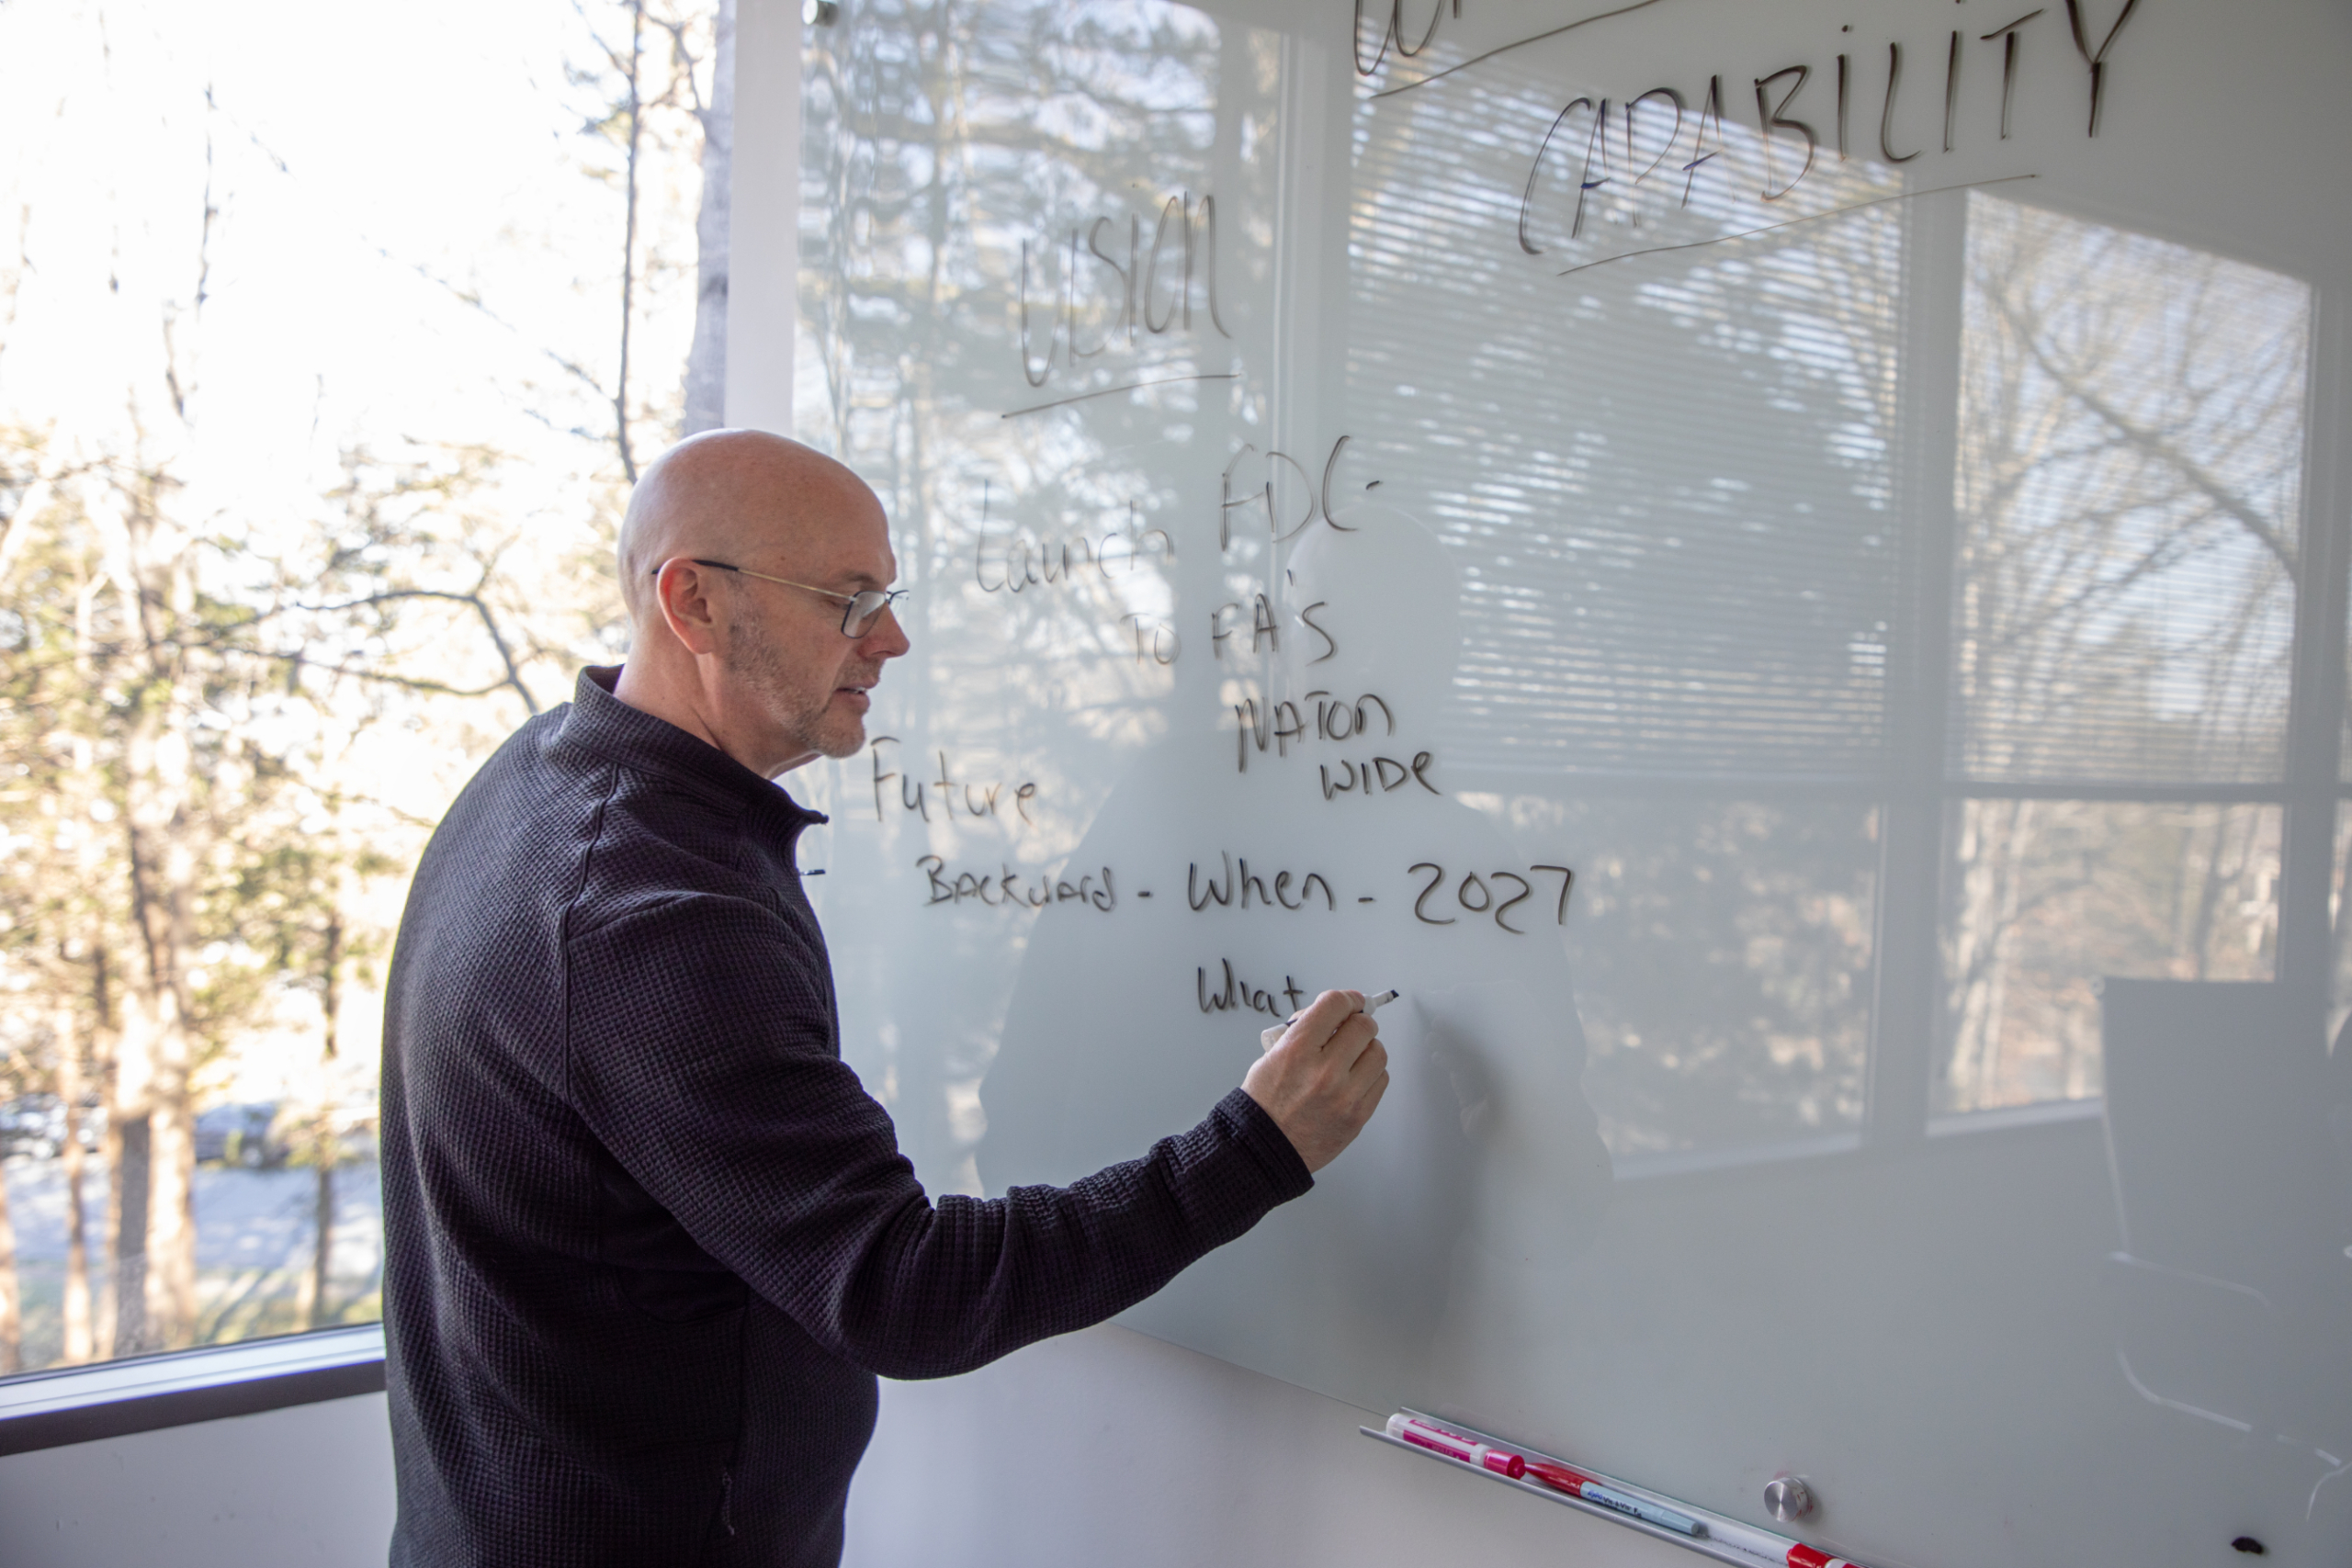 CAPABILITY
VISION
Launch FDC-
TO FA'S
NATION
WIDE
Future
Backward - When - 2027
What